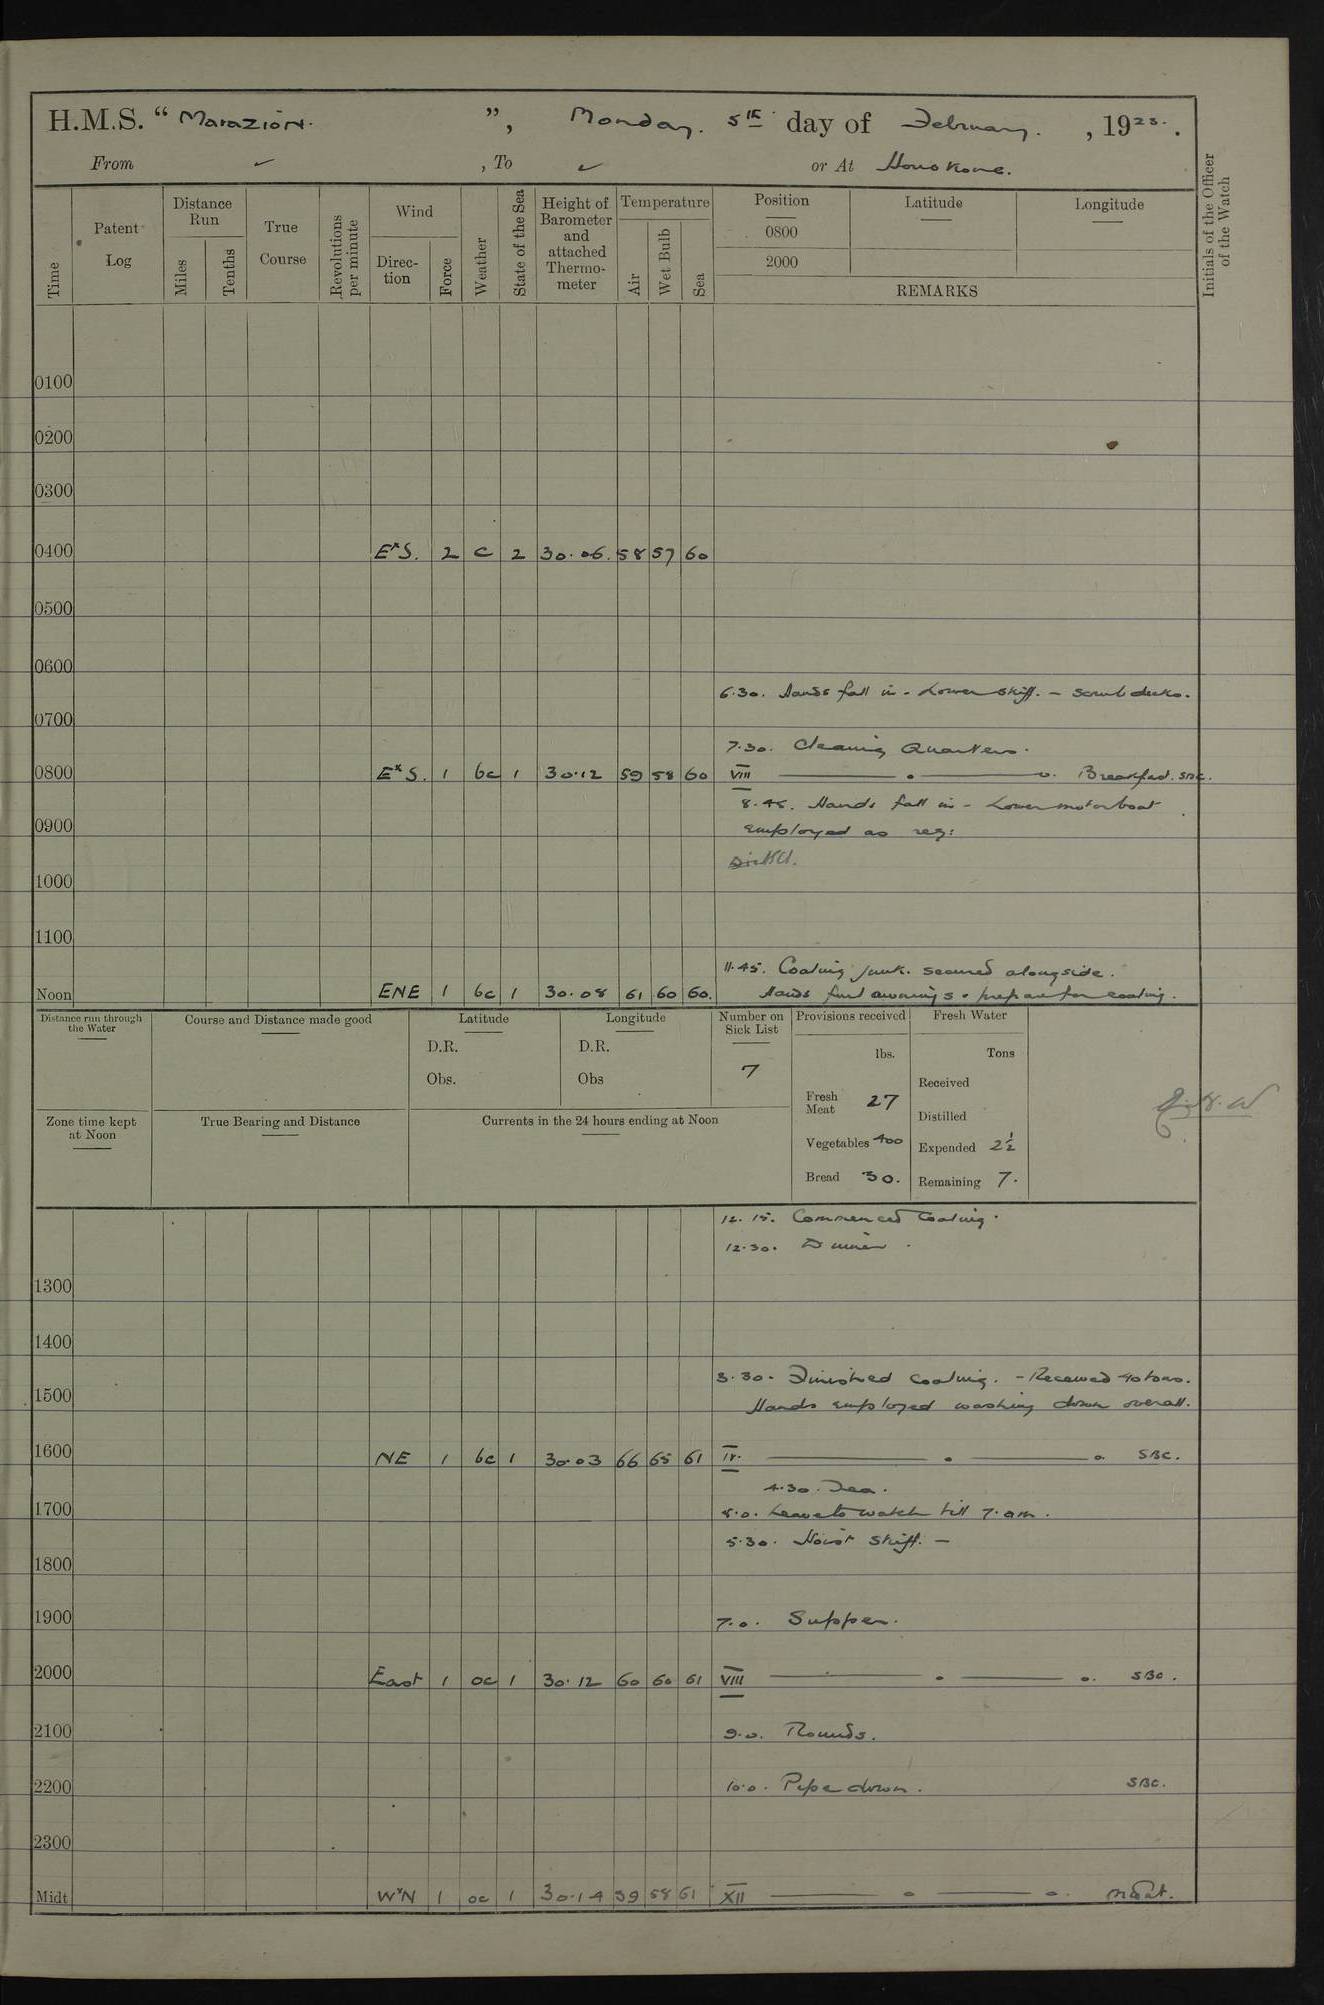 H.M.S. “ Marazion. ”, Monday. 5th day of February. , 1923.
From ✓ , To ✓ or At Hong Kong.
Time
Patent Log
Distance Run
Miles
Tenths
True Course
Revolutions per minute
Wind
Direction
Force
Weather
State of the Sea
Height of Barometer and attached Thermometer
Temperature
Air
Wet Bulb
Sea
Position
0800
2000
Latitude
Longitude
REMARKS
Initials of the Officer of the Watch
0100
0200
0300
0400 ExS. 2 c 2 30.06. 58 57 60
0500
0600
6.30. Hands fall in - Lower skiff. - Scrub decks.
0700
7.30. Cleaning Quarters.
0800 ExS. 1 bc 1 30.12 59 58 60 VIII Breakfast. SBC.
8.45. Hands fall in - Lower motor boat
0900
employed as req:
1000
1100
11.45. Coaling junk. secured alongside.
Noon ENE 1 bc 1 30.08 61 60 60. Hands furl awnings & prepare for coaling.
Distance run through the Water
Course and Distance made good
Latitude
D.R.
Obs.
Longitude
D.R.
Obs
Number on Sick List
7
Provisions received
lbs.
Fresh Meat 27
Vegetables 400
Bread 30.
Fresh Water
Tons
Received
Distilled
Expended 2½
Remaining 7.
Zone time kept at Noon
True Bearing and Distance
Currents in the 24 hours ending at Noon
12.15. Commenced Coaling.
12.30. Dinner.
1300
1400
3.30. Finished coaling. - Received 40 tons.
1500
Hands employed washing down overall.
1600 NE 1 bc 1 30.03 66 65 61 IV. SBC.
4.30. Tea.
1700
5.0. Leave to watch till 7.am.
5.30. Hoist skiff. -
1800
1900
7.0. Supper.
2000 East 1 oc 1 30.12 60 60 61 VIII SBC.
2100
9.0. Rounds.
2200
10.0. Pipe down. SBC.
2300
Midt WxN 1 oc 1 30.14 59 58 61 XII